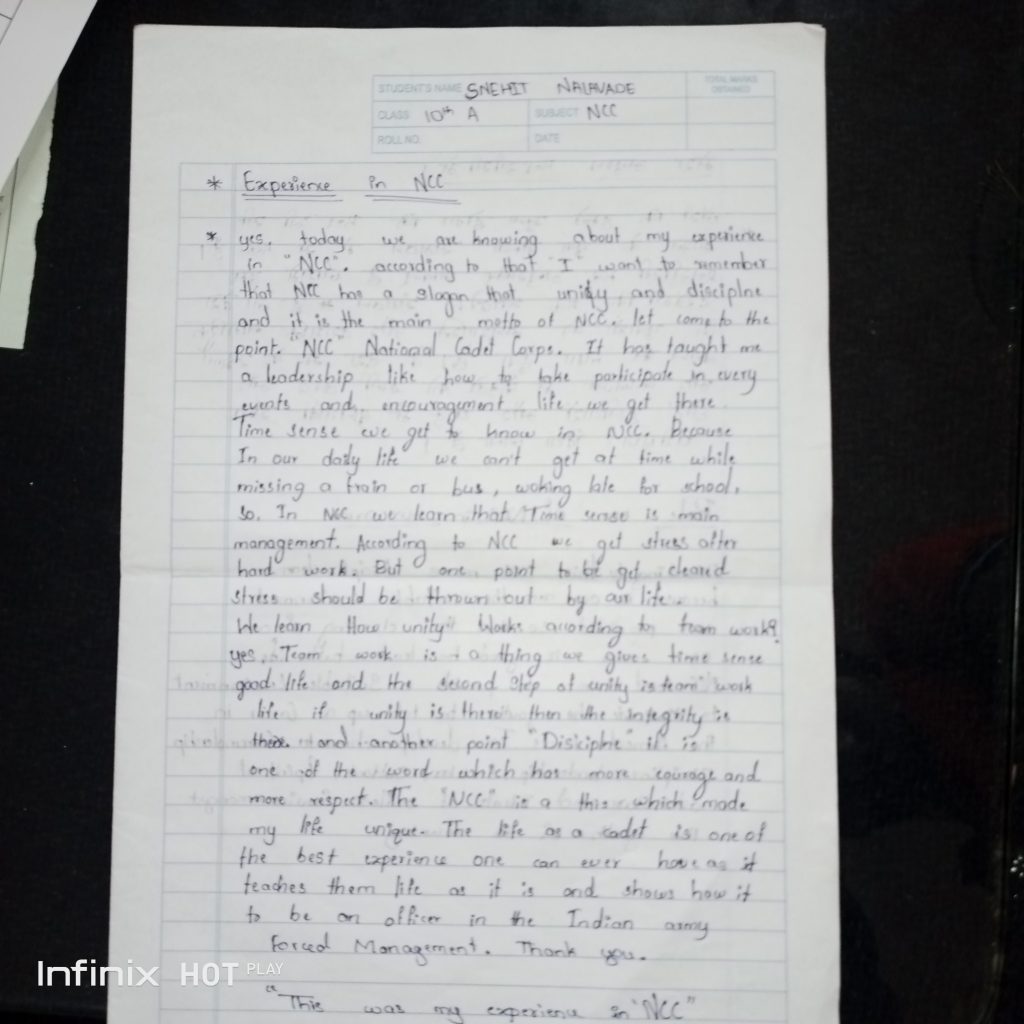 STUDENT'S NAME SNEHIT NALAVADE
TOTAL MARKS OBTAINED
CLASS 10th A SUBJECT NCC
ROLL NO. DATE
* Experience in NCC
* yes, today we are knowing about my experience
in "NCC". according to that "I" want to remember
that NCC has a slogan that unity and disciplne
and it is the main motto of NCC. let come to the
point. "NCC" National Cadet Corps. It has taught me
a leadership like how to take participate in every
events and encouragement life we get there
Time sense we get to know in NCC. Because
In our daily life we can't get at time while
missing a train or bus, woking late for school.
So. In NCC we learn that Time sense is main
management. According to NCC we get stress after
hard work. But one point to be get cleared
stress should be thrown out by our life.
We learn How unity Works according to team work?
yes, Team work is a thing we gives time sense
good life and the second step of unity is team work
life if unity is there then the integrity is
there. and another point "Discipline" it is
one of the word which has more courage and
more respect. The "NCC" is a this which made
my life unique. The life as a cadet is one of
the best experience one can ever have as it
teaches them life as it is and shows how it
to be an officer in the Indian army
Forced Management. Thank you.
"This was my experience in "NCC"
Infinix HOT PLAY